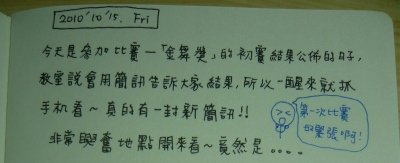 2010'10'15. Fri
今天是參加比賽—「金舞獎」的初賽結果公佈的日子,
教室說會用簡訊告訴大家結果,所以一醒來就抓
手機看~真的有一封新簡訊!!
非常興奮地點開來看~竟然是....
第一次比賽
好緊張啊!